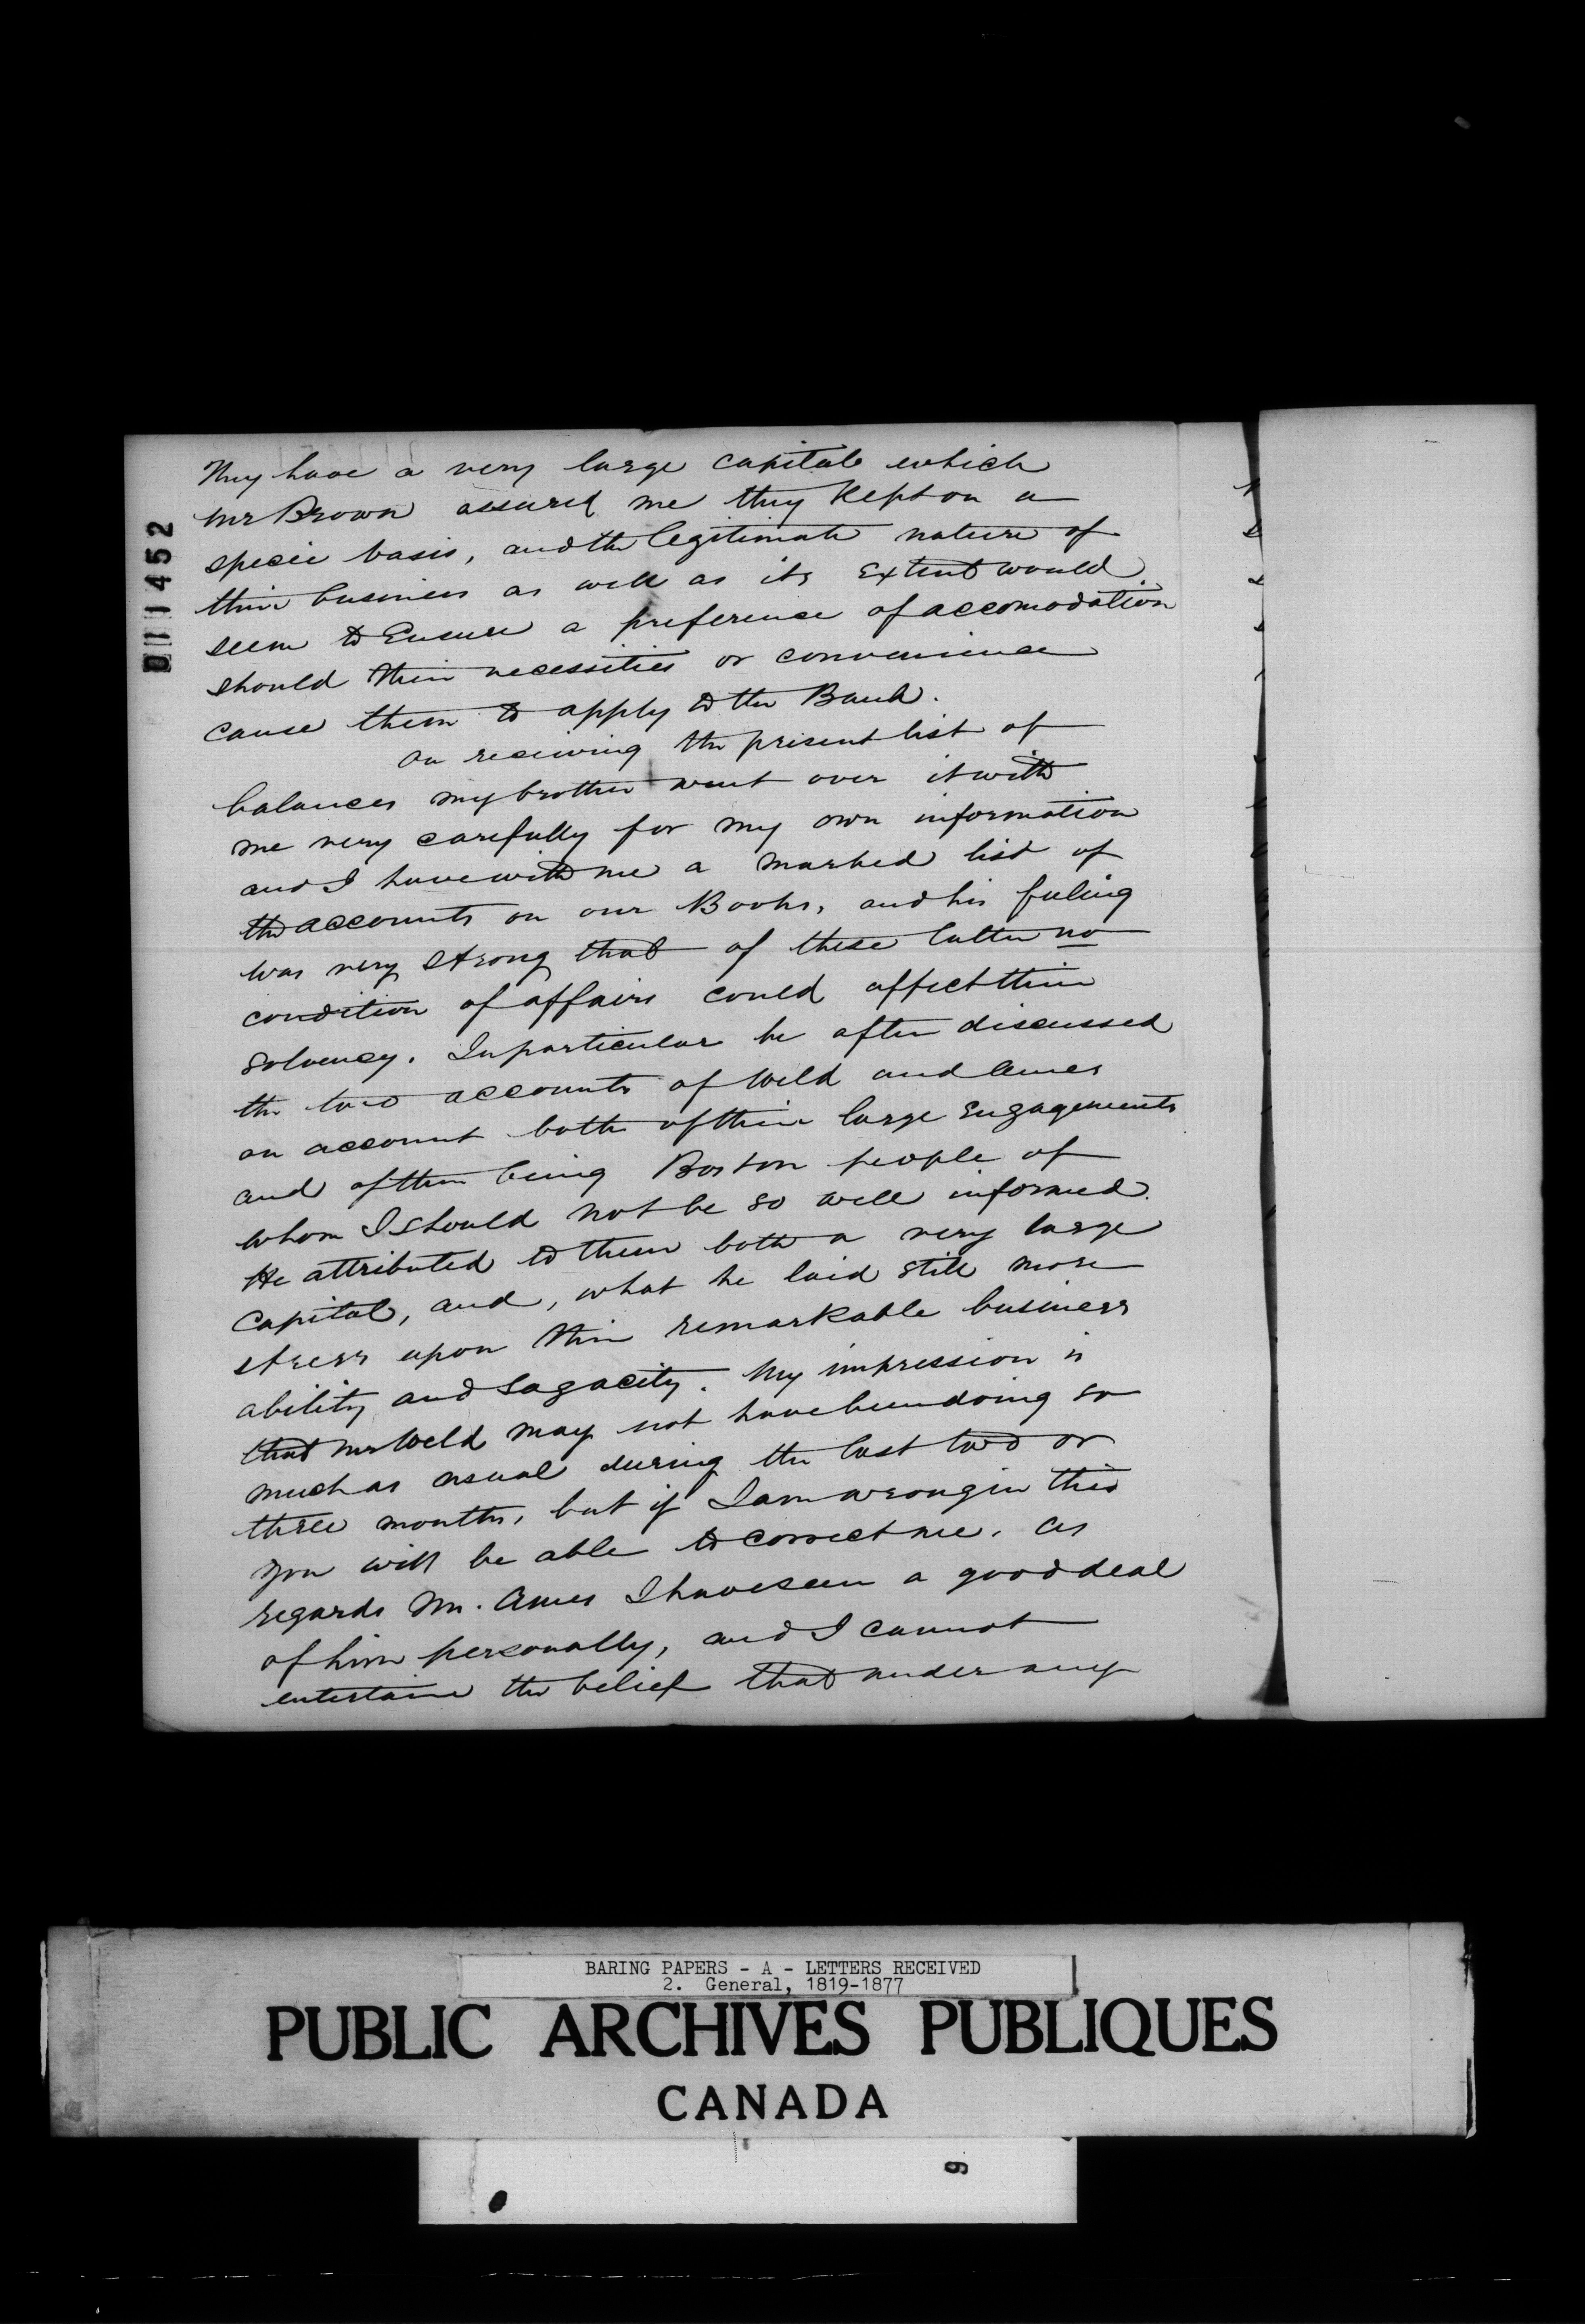 They have a very large capital which
Mr Brown assured me they kept on a
specie basis, and the legitimate nature of
their business as well as its extent would
seem to ensure a preference of accomodation
should their necessities or convenience
cause them to apply to the Bank.
On receiving the present list of
balances my brother went over it with
me very carefully for my own information
and I have with me a marked list of
the accounts on our Books, and his feeling
was very strong that of these latter no
condition of affairs could affect their
solvency. In particular he often discussed
the two accounts of Weld and Ames
on account both of their large engagements
and of them being Boston people of
whom I should not be so well informed.
He attributed to them both a very large
capital, and, what he laid still more
stress upon their remarkable business
ability and sagacity. My impression is
that Mr Weld may not have been doing so
much as usual during the last two or
three months, but if I am wrong in this
you will be able to correct me. As
regards Mr. Ames I have seen a good deal
of him personally, and I cannot
entertain the belief that under any
111452
BARING PAPERS - A - LETTERS RECEIVED
2. General, 1819-1877
PUBLIC ARCHIVES PUBLIQUES
CANADA
9